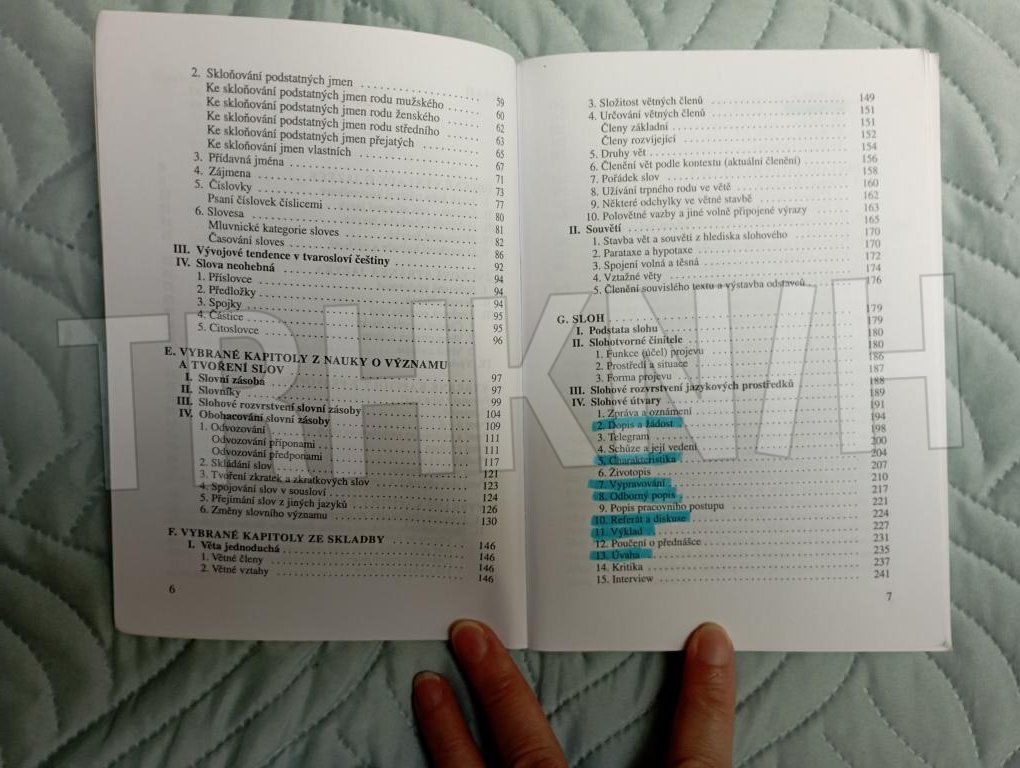 2. Skloňování podstatných jmen 59
Ke skloňování podstatných jmen rodu mužského 60
Ke skloňování podstatných jmen rodu ženského 62
Ke skloňování podstatných jmen rodu středního 63
Ke skloňování podstatných jmen přejatých 65
Ke skloňování jmen vlastních 67
3. Přídavná jména 71
4. Zájmena 73
5. Číslovky 77
Psaní číslovek číslicemi 80
6. Slovesa 81
Mluvnické kategorie sloves 82
Časování sloves 86
III. Vývojové tendence v tvarosloví češtiny 92
IV. Slova neohebná 94
1. Příslovce 94
2. Předložky 94
3. Spojky 95
4. Částice 95
5. Citoslovce 96
E. VYBRANÉ KAPITOLY Z NAUKY O VÝZNAMU
A TVOŘENÍ SLOV 97
I. Slovní zásoba 97
II. Slovníky 99
III. Slohové rozvrstvení slovní zásoby 104
IV. Obohacování slovní zásoby 109
1. Odvozování 111
Odvozování příponami 111
Odvozování předponami 117
2. Skládání slov 121
3. Tvoření zkratek a zkratkových slov 123
4. Spojování slov v sousloví 124
5. Přejímání slov z jiných jazyků 126
6. Změny slovního významu 130
F. VYBRANÉ KAPITOLY ZE SKLADBY 146
I. Věta jednoduchá 146
1. Větné členy 146
2. Větné vztahy 146
6
3. Složitost větných členů 149
4. Určování větných členů 151
Členy základní 151
Členy rozvíjející 152
5. Druhy vět 154
6. Členění vět podle kontextu (aktuální členění) 156
7. Pořádek slov 158
8. Užívání trpného rodu ve větě 160
9. Některé odchylky ve větné stavbě 162
10. Polovětné vazby a jiné volně připojené výrazy 163
II. Souvětí 165
1. Stavba vět a souvětí z hlediska slohového 170
2. Parataxe a hypotaxe 170
3. Spojení volná a těsná 172
4. Vztažné věty 174
5. Členění souvislého textu a výstavba odstavců 176
G. SLOH 179
I. Podstata slohu 179
II. Slohotvorné činitele 180
1. Funkce (účel) projevu 180
2. Prostředí a situace 186
3. Forma projevu 187
III. Slohové rozvrstvení jazykových prostředků 188
IV. Slohové útvary 189
1. Zpráva a oznámení 191
2. Dopis a žádost 194
3. Telegram 198
4. Schůze a její vedení 200
5. Charakteristika 204
6. Životopis 207
7. Vypravování 210
8. Odborný popis 217
9. Popis pracovního postupu 221
10. Referát a diskuse 224
11. Výklad 227
12. Poučení o přednášce 231
13. Úvaha 235
14. Kritika 237
15. Interview 241
7
TRHKNIH